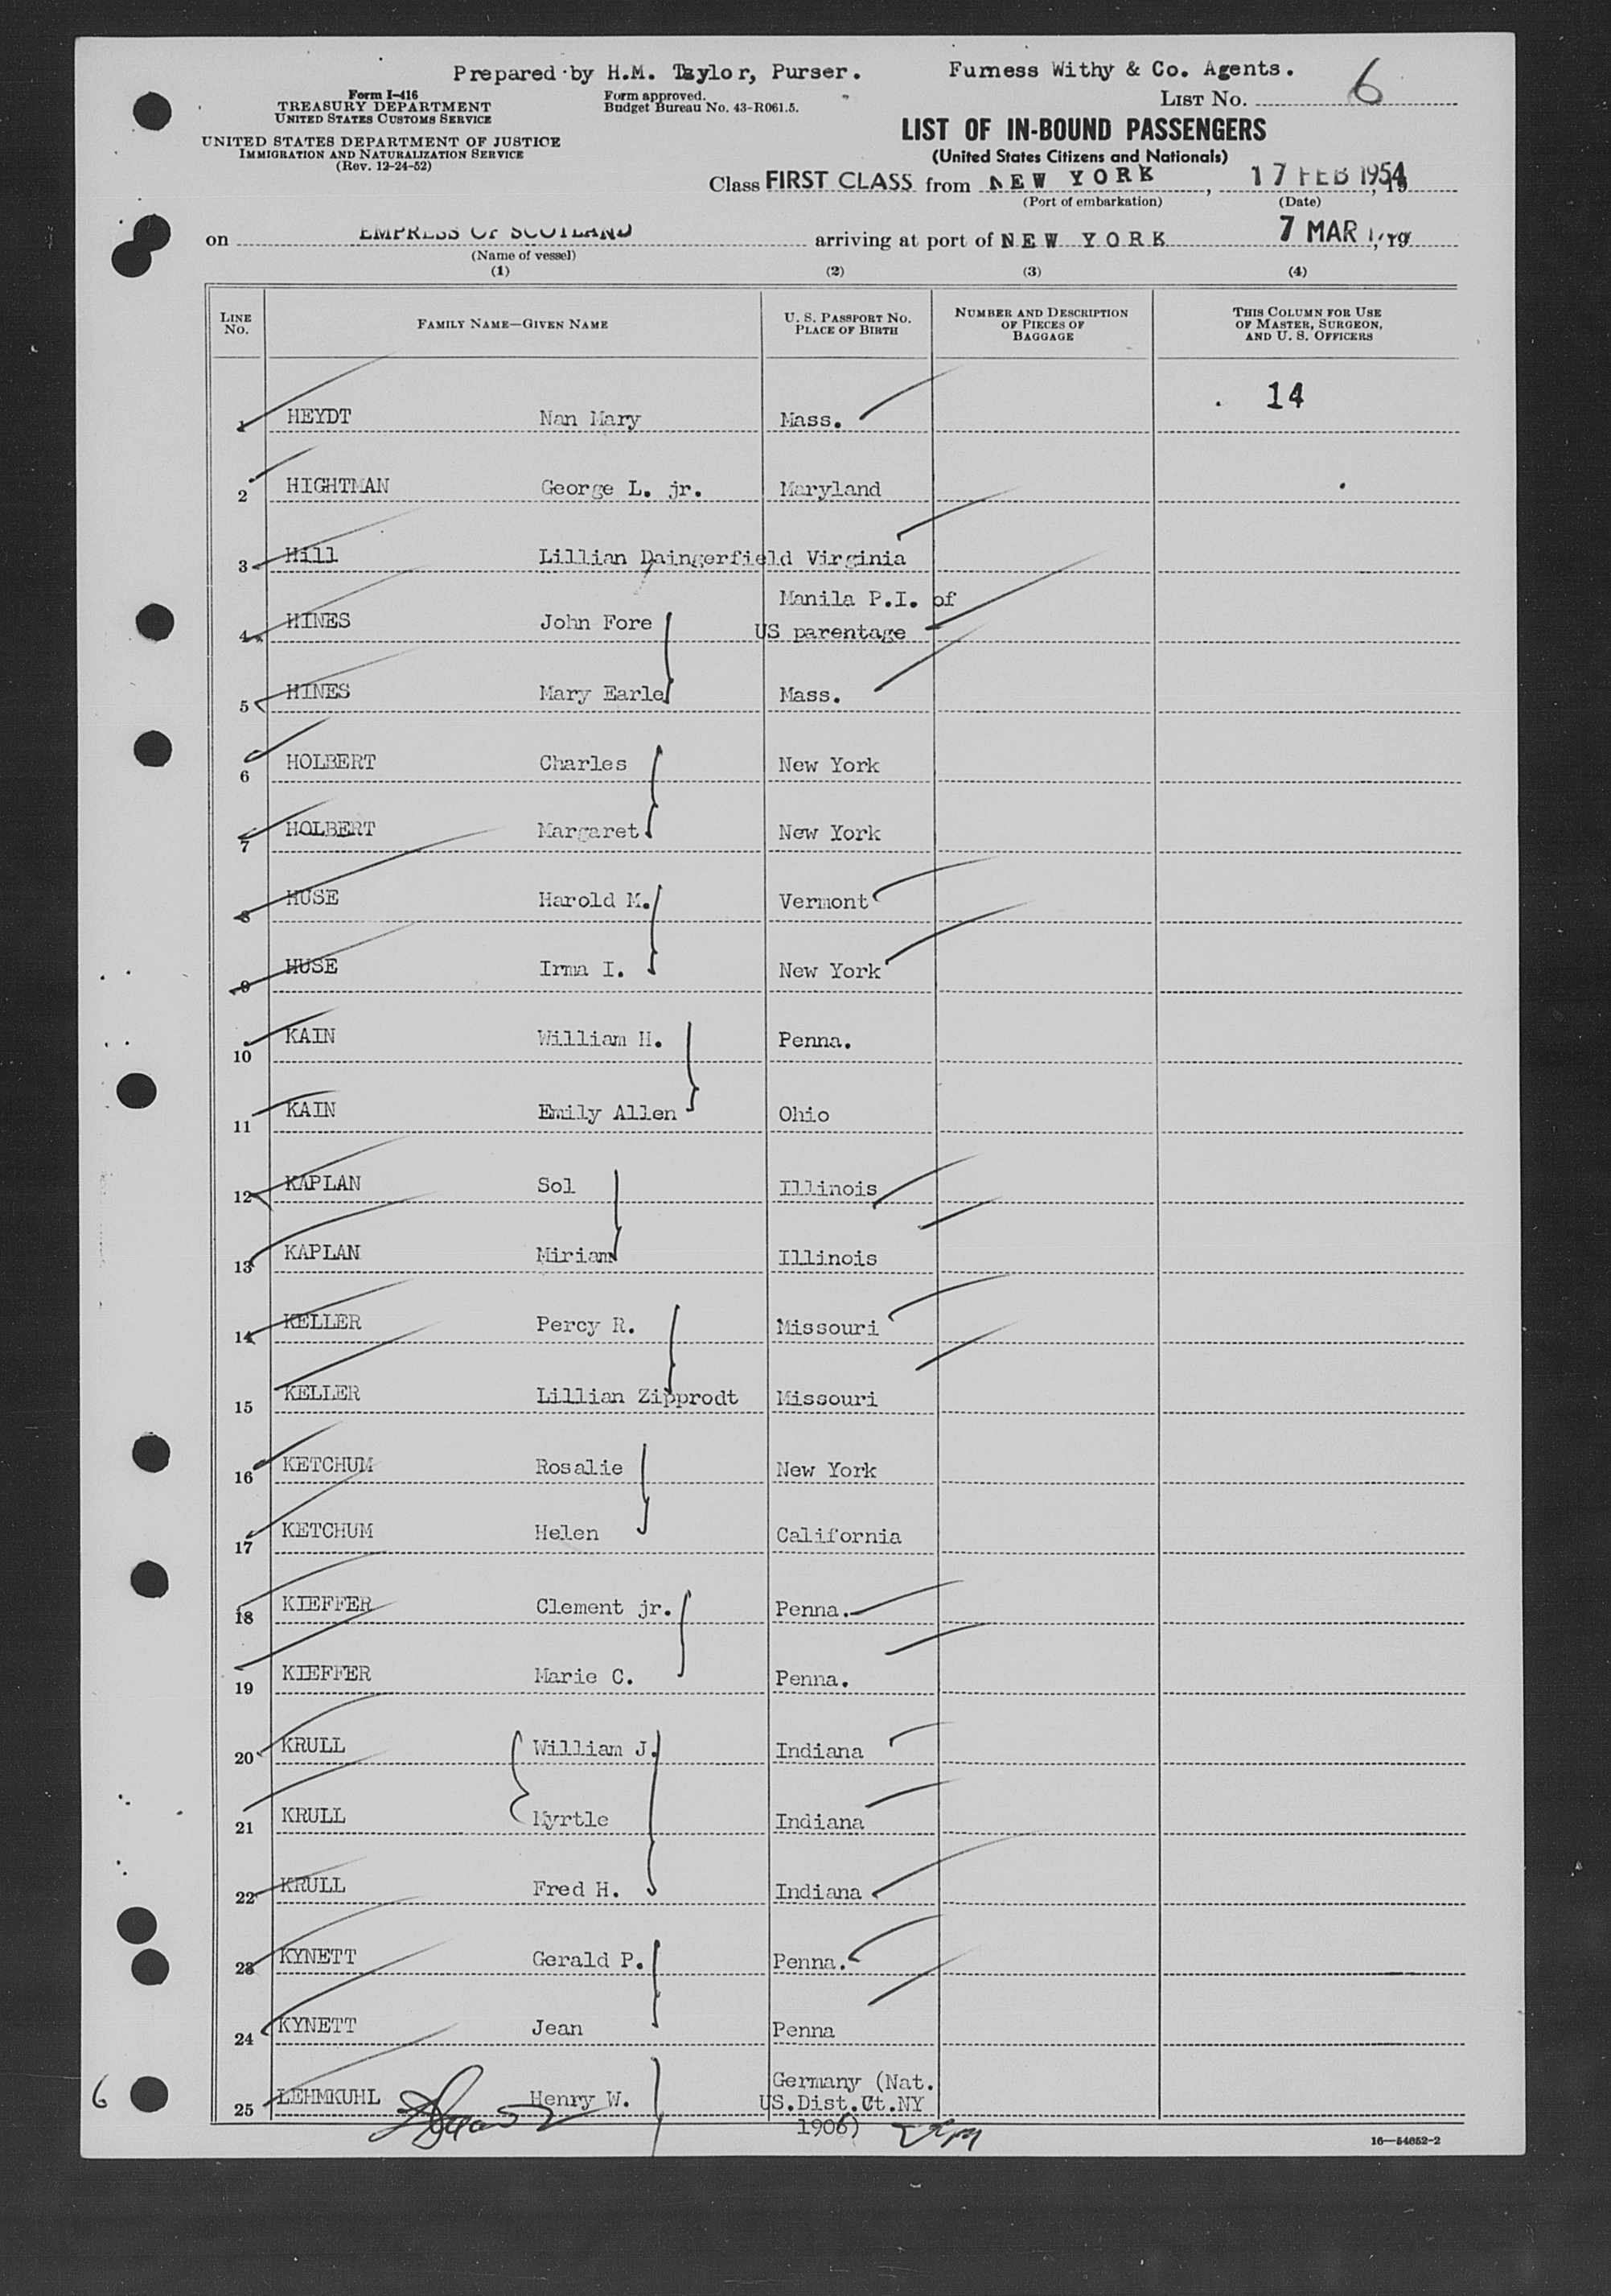 Prepared by H.M. Taylor, Purser. Furness Withy & Co. Agents.
Form I-416
TREASURY DEPARTMENT
UNITED STATES CUSTOMS SERVICE
UNITED STATES DEPARTMENT OF JUSTICE
IMMIGRATION AND NATURALIZATION SERVICE
(Rev. 12-24-52)
Form approved.
Budget Bureau No. 43-R061.5.
LIST NO. 6
LIST OF IN-BOUND PASSENGERS
(United States Citizens and Nationals)
Class FIRST CLASS from NEW YORK, 17 FEB 1954
(Port of embarkation) (Date)
on EMPRESS OF SCOTLAND arriving at port of NEW YORK 7 MAR
(Name of vessel)
(1) (2) (3) (4)
LINE NO. FAMILY NAME—GIVEN NAME U. S. PASSPORT NO. PLACE OF BIRTH NUMBER AND DESCRIPTION OF PIECES OF BAGGAGE THIS COLUMN FOR USE OF MASTER, SURGEON, AND U. S. OFFICERS
14
1 HEYDT Nan Mary Mass.
2 HIGHTMAN George L. jr. Maryland
3 Hill Lillian Daingerfield Virginia
Manila P.I. of
4 HINES John Fore US parentage
5 HINES Mary Earle Mass.
6 HOLBERT Charles New York
7 HOLBERT Margaret New York
8 HUSE Harold M. Vermont
9 HUSE Irma I. New York
10 KAIN William H. Penna.
11 KAIN Emily Allen Ohio
12 KAPLAN Sol Illinois
13 KAPLAN Miriam Illinois
14 KELLER Percy R. Missouri
15 KELLER Lillian Zipprodt Missouri
16 KETCHUM Rosalie New York
17 KETCHUM Helen California
18 KIEFFER Clement jr. Penna.
19 KIEFFER Marie C. Penna.
20 KRULL William J. Indiana
21 KRULL Myrtle Indiana
22 KRULL Fred H. Indiana
23 KYNETT Gerald P. Penna.
24 KYNETT Jean Penna
Germany (Nat.
25 LEHMKUHL Henry W. US.Dist.Ct.NY
1906)
6
16—54652-2